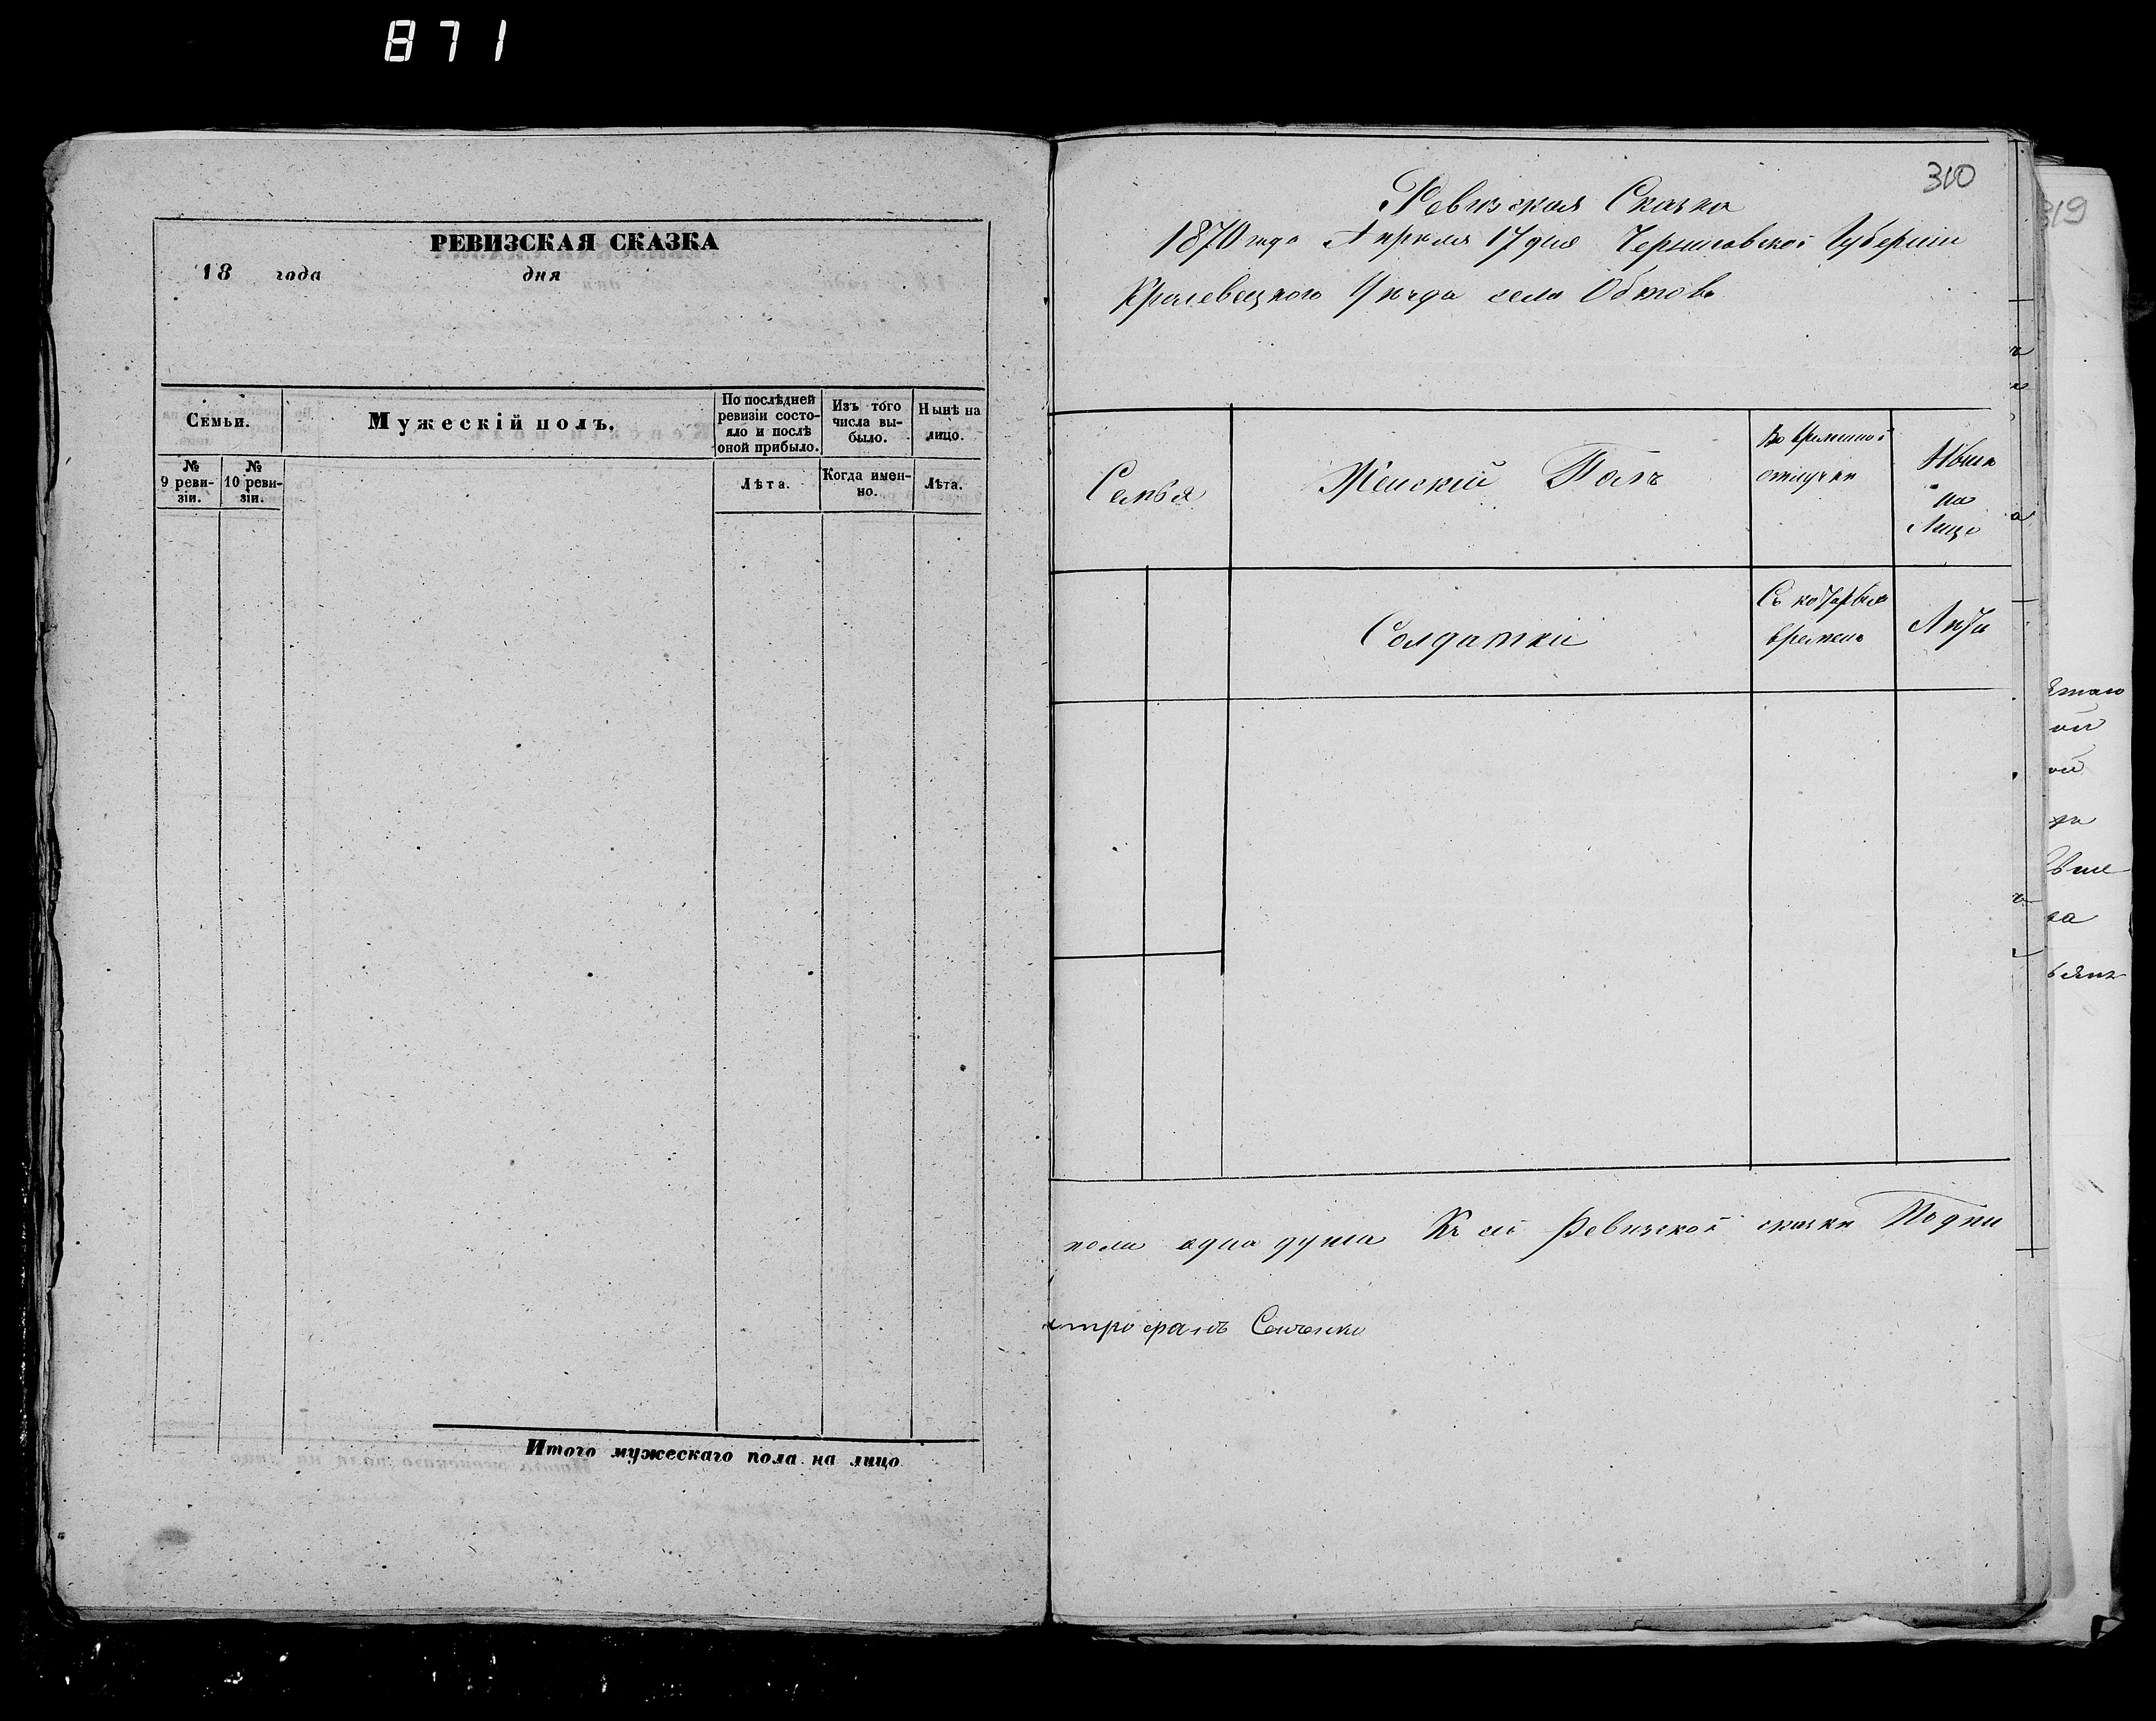 871
РЕВИЗСКАЯ СКАЗКА
18 года дня
Семьи.
Мужескій полъ.
По послѣдней ревизіи состояло и послѣ оной прибыло.
Изъ того числа выбыло.
Нынѣ на лицо.
№ 9 ревизіи.
№ 10 ревизіи.
Лѣта.
Когда именно.
Лѣта.
Итого мужескаго пола на лицо
310
Ревизская Сказка
1870 года Апреля 17 дня Черниговской Губерніи
Кролевецкого Уезда села Обтовъ
Семья
Женскій Полъ
Во временной
отлучки
Ныне
на
Лицо
Солдатки
Съ котораго
времени
Лета
пола одна душа Къ сей Ревизской сказки Подпи
трофанъ
319